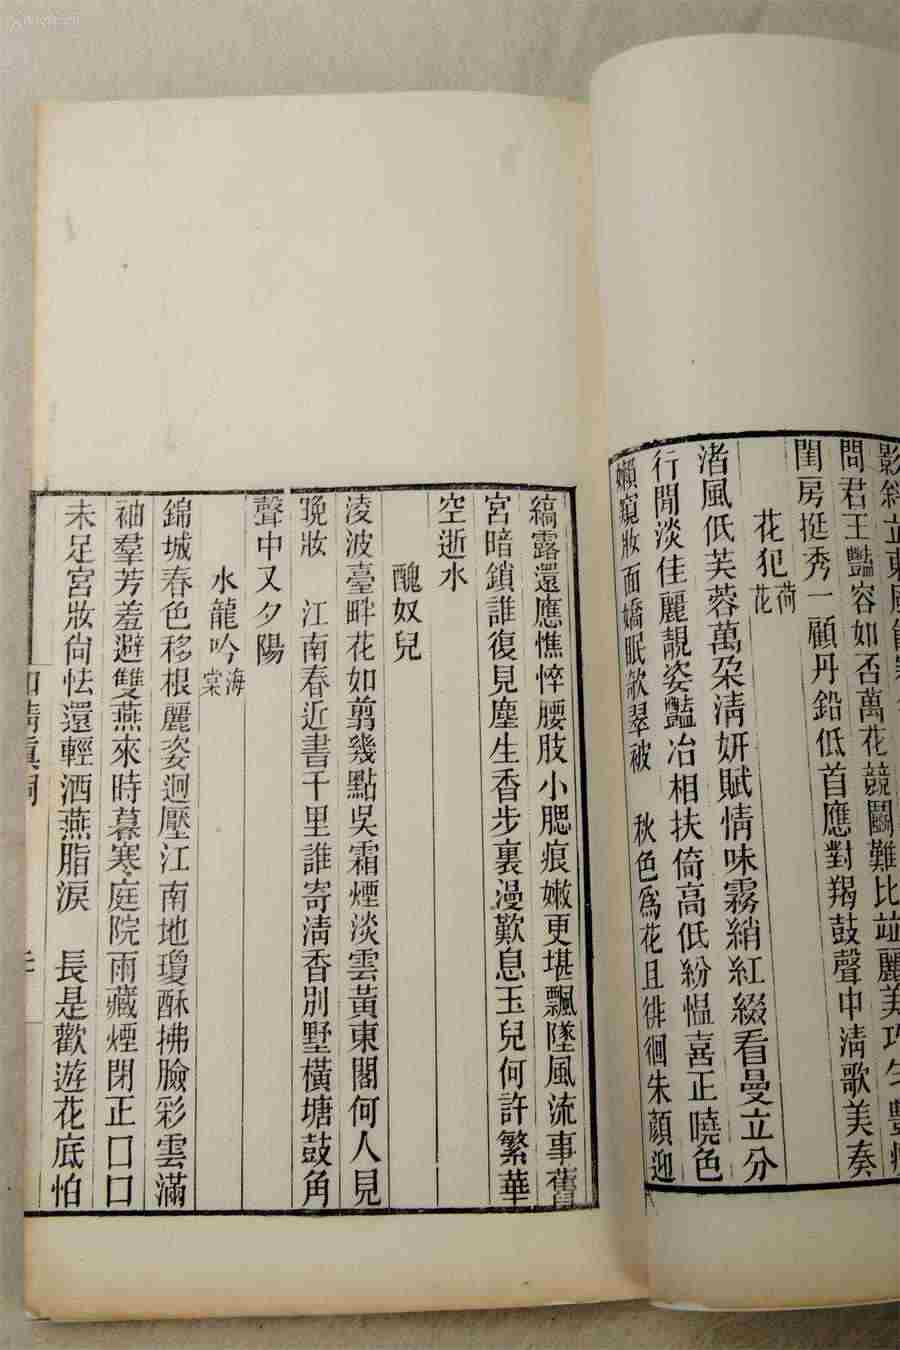 問君王豔容如否萬花競鬭難比並麗美巧生豔
閨房挺秀一顧丹鉛低首應對羯鼓聲中清歌美奏
花犯 荷花
渚風低芙蓉萬朶清妍賦情味霧綃紅綴看曼立分
行閒淡佳麗靚姿豔冶相扶倚高低紛慍喜正曉色
嬾窺妝面嬌眠欹翠被 秋色爲花且徘徊朱顏迎
縞露還應憔悴腰肢小腮痕嫩更堪飄墜風流事舊
宮暗鎖誰復見塵生香步裏漫歎息玉兒何許繁華
空逝水
醜奴兒
凌波臺畔花如剪幾點吳霜煙淡雲黃東閣何人見
晚妝 江南春近書千里誰寄清香別墅橫塘鼓角
聲中又夕陽
水龍吟 海棠
錦城春色移根麗姿迴壓江南地瓊酥拂臉彩雲滿
袖羣芳羞避雙燕來時暮寒庭院雨藏煙閉正口口
未足宮妝尙怯還輕洒燕脂淚 長是歡遊花底怕